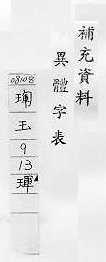 補充資料
異體字表
08108
玉
9
13
琿